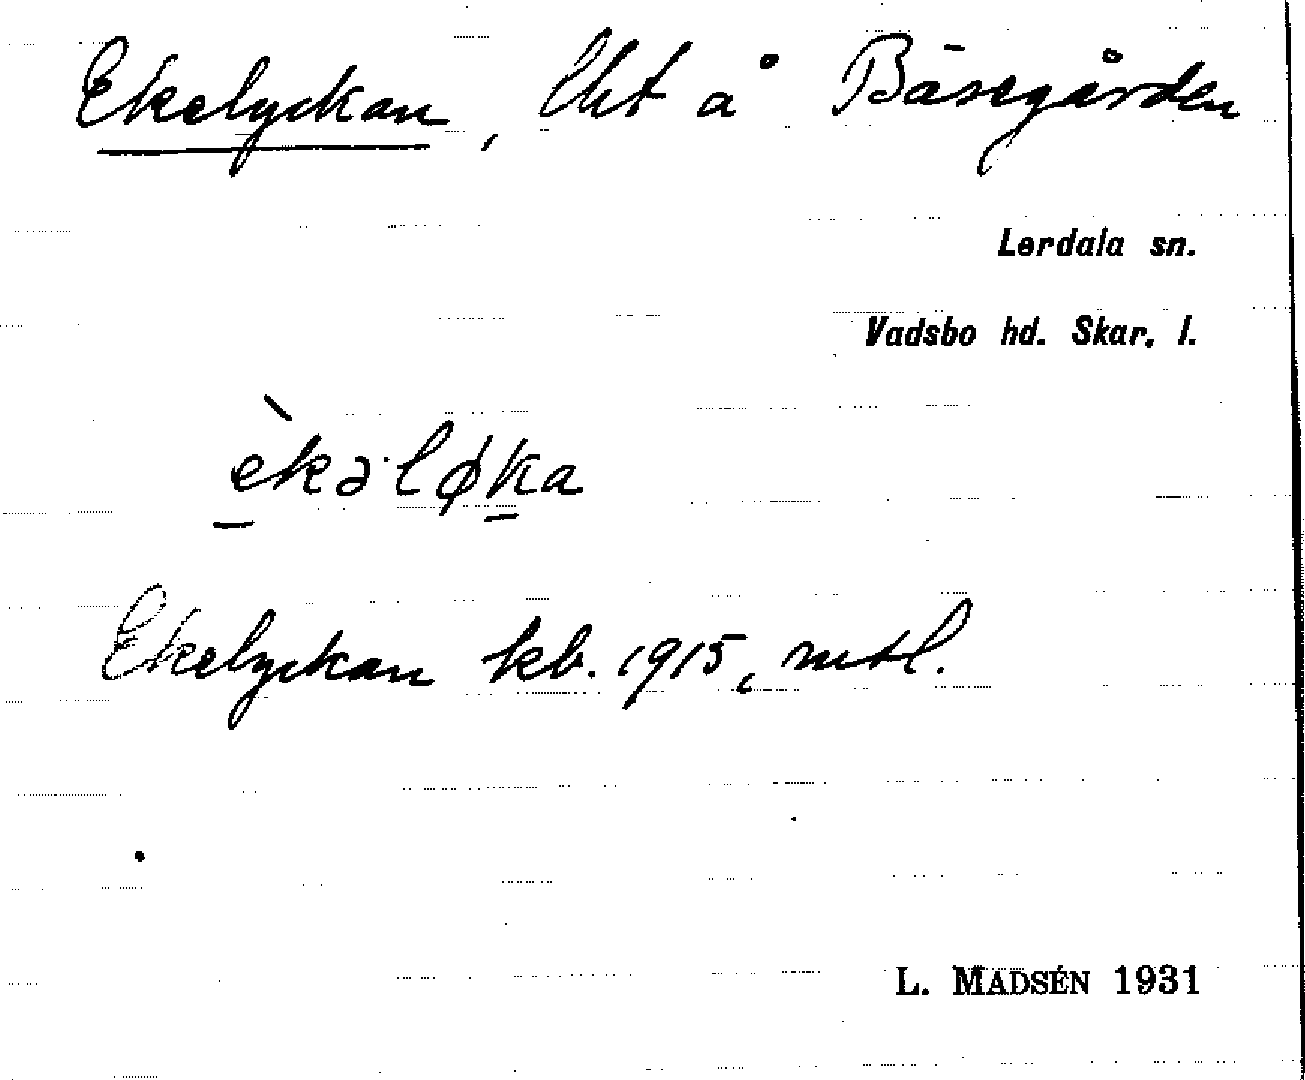 Ekelyckan, lht å Bäsegården
Lerdala sn.
Vadsbo hd. Skar. l.
èkəløka
Ekelyckan kb. 1915, mtl.
L. MADSÉN 1931